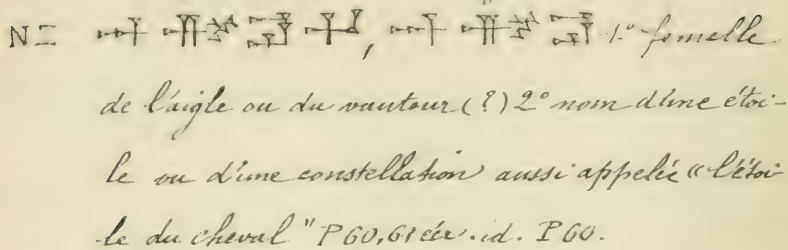 N= , 1° femelle
de l'aigle ou du vautour (?) 2° nom d'une étoi-
le ou d'une constellation aussi appelée "l'étoi-
le du cheval" P 60, 61 id. P 60.